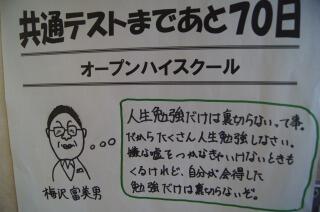 共通テストまであと70日
オープンハイスクール
人生勉強だけは裏切らない。って事。
だからたくさん人生勉強しなさい。
嫌な嘘をつかなきゃいけないときも
くるけれど、自分が会得した
勉強だけは裏切らないぞ。
梅沢富美男